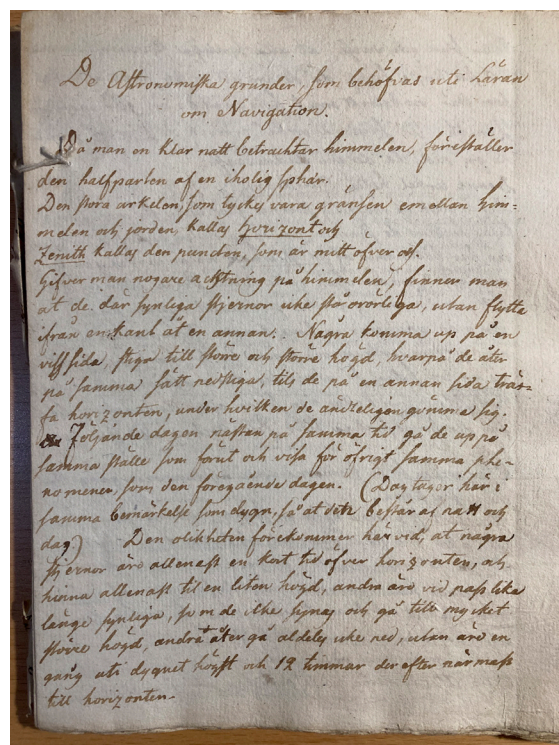 De Astronomiska grunder, som behöfvas uti Läran
om Navigation.
Då man en klar natt betracktar himmelen, föreställer
den halfparten af en ihålig sphär.
Den stora cirkelen, som tyckes vara gränsen emellan him-
melen och jorden, kallas Horizont och
Zenith kallas den puncten, som är mitt öfver oss.
Gifver man nogare acktning på himmelen, finner man
at de där synliga stjernor icke stå orörliga, utan flytta
ifrån en kant åt en annan. Några komma up på en
viss sida, stiga till större och större högd, hvarpå de åter
på samma sätt nedstiga, tils de på en annan sida träf-
fa horizonten, under hvilken de ändteligen gömma sig.
Följande dagen nästan på samma tid gå de up på
samma ställe som förut och visa för öfrigt samma phe-
nomener, som den foregående dagen. (Dag tages här i
samma bemärkelse som dygn, så at det består af natt och
dag) Den olikheten förekommer härvid, at några
stjernor äro allenast en kort tid öfver horizonten, och
hinna allenast til en liten högd, andra äro vid pass lika
länge synliga, som de icke synas och gå till mycket
större högd, andra åter gå aldeles icke ned, utan äro en
gång uti dygnet högst och 12 timmar derefter närmast
till horizonten.